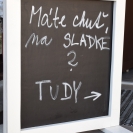 Máte chuť
na SLADKÉ
?
TUDY →